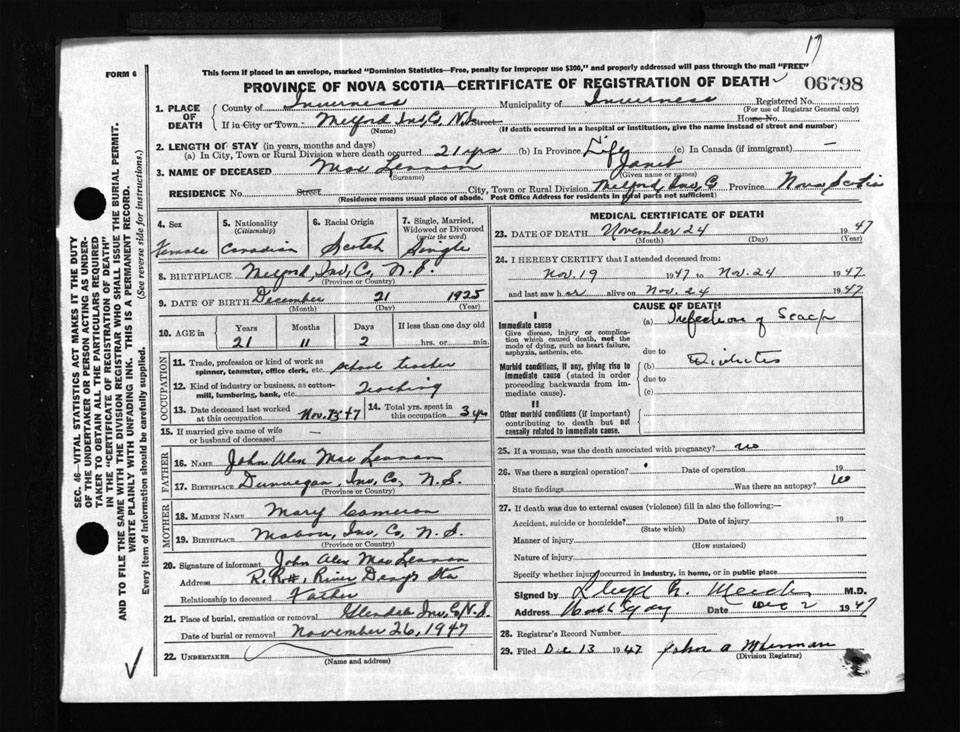 17
FORM 6
This form if placed in an envelope, marked "Dominion Statistics—Free, penalty for improper use $300," and properly addressed will pass through the mail "FREE"
PROVINCE OF NOVA SCOTIA—CERTIFICATE OF REGISTRATION OF DEATH 06798
1. PLACE OF DEATH County of Inverness Municipality of Inverness Registered No.
(For use of Registrar General only)
If in City or Town: Melford Inv, Co, N.S. Street House No.
(Name) (If death occurred in a hospital or institution, give the name instead of street and number)
2. LENGTH OF STAY (in years, months and days)
(a) In City, Town or Rural Division where death occurred 21 yrs (b) In Province Life (c) In Canada (if immigrant) —
3. NAME OF DECEASED Mac Lennan Janet
(Surname) (Given name or names)
RESIDENCE No. Street City, Town or Rural Division Melford, Inv, C Province Nova Scotia
(Residence means usual place of abode. Post Office Address for residents in rural parts not sufficient)
SEC. 46—VITAL STATISTICS ACT MAKES IT THE DUTY
OF THE UNDERTAKER OR PERSON ACTING AS UNDER-
TAKER TO OBTAIN ALL THE PARTICULARS REQUIRED
IN THE "CERTIFICATE OF REGISTRATION OF DEATH"
AND TO FILE THE SAME WITH THE DIVISION REGISTRAR WHO SHALL ISSUE THE BURIAL PERMIT.
WRITE PLAINLY WITH UNFADING INK. THIS IS A PERMANENT RECORD.
Every item of information should be carefully supplied. (See reverse side for instructions.)
4. Sex 5. Nationality (Citizenship) 6. Racial Origin 7. Single, Married, Widowed or Divorced (write the word)
Female Canadian Scotch Single
8. BIRTHPLACE Melford, Inv, Co, N.S.
(Province or Country)
9. DATE OF BIRTH December 21 1925
(Month) (Day) (Year)
10. AGE in Years Months Days If less than one day old
21 11 2 hrs. or min.
OCCUPATION
11. Trade, profession or kind of work as spinner, teamster, office clerk, etc. school teacher
12. Kind of industry or business, as cotton-mill, lumbering, bank, etc. Teaching
13. Date deceased last worked at this occupation Nov. 13-47 14. Total yrs. spent in this occupation 3 yrs
15. If married give name of wife or husband of deceased —
FATHER
16. NAME John Alex Mac Lennan
17. BIRTHPLACE Dunvegan, Inv, Co, N.S.
(Province or Country)
MOTHER
18. MAIDEN NAME Mary Cameron
19. BIRTHPLACE Mabou, Inv, Co, N.S.
(Province or Country)
20. Signature of informant John Alex Mac Lennan
Address River Denys Sta
Relationship to deceased Father
21. Place of burial, cremation or removal Glendale Inv, Co, N.S.
Date of burial or removal November 26, 1947
22. UNDERTAKER
(Name and address)
MEDICAL CERTIFICATE OF DEATH
23. DATE OF DEATH November 24 1947
(Month) (Day) (Year)
24. I HEREBY CERTIFY that I attended deceased from:
Nov. 19 1947 to Nov. 24 1947
and last saw her alive on Nov. 24 1947
CAUSE OF DEATH
I
Immediate cause
Give disease, injury or complication which caused death, not the mode of dying, such as heart failure, asphyxia, asthenia, etc.
(a) Infection of Scalp
due to
Morbid conditions, if any, giving rise to immediate cause (stated in order proceeding backwards from immediate cause).
(b) Diabetes
due to
(c)
II
Other morbid conditions (if important) contributing to death but not causally related to immediate cause.
25. If a woman, was the death associated with pregnancy? no
26. Was there a surgical operation? Date of operation 19
State findings Was there an autopsy? no
27. If death was due to external causes (violence) fill in also the following:—
Accident, suicide or homicide? Date of injury 19
(State which)
Manner of injury
(How sustained)
Nature of injury
Specify whether injury occurred in industry, in home, or in public place
Signed by Lloyd M.D.
Address Date Dec 2 1947
28. Registrar's Record Number
29. Filed Dec 13 1947 John A
(Division Registrar)